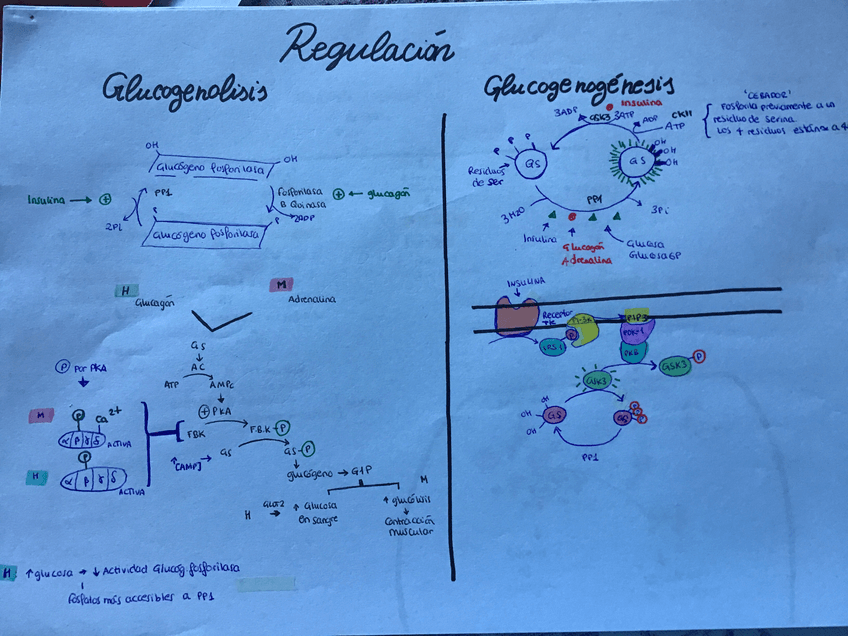 Regulación
Glucogenolisis
OH
Glucógeno fosforilasa
OH
Insulina → +
PP1
2Pi
Fosforilasa
B Quinasa
+ ← glucagón
2ADP
P
P
Glucógeno fosforilasa
H
Glucagón
M
Adrenalina
Gs
AC
ATP
AMPc
+ PKA
P Por PKA
M
P
Ca2+
α β γ δ
ACTIVA
H
P
α β γ δ
ACTIVA
FBK
FBK-P
↑[AMP]
GS
GS-P
glucógeno → G1P
H
GLUT2
↑ Glucosa
en sangre
M
↑ glucólisis
contracción
muscular
H ↑ glucosa → ↓ Actividad Glucóg. fosforilasa
fosfatos más accesibles a PP1
Glucogenogénesis
Insulina
3ADP
GSK3
3ATP
ADP
CKII
ATP
'CEBADOR'
Fosforila previamente a la
residuo de serina
Los 4 residuos están a 4
P P P
GS
Residuos
de ser
GS
OH
OH
OH
PP1
3H2O
3Pi
Insulina
Glucagón
Adrenalina
Glucosa
Glucosa 6P
INSULINA
Receptor
TK
IRS-1
P
PI-3K
PIP3
PDK-1
PKB
GSK3
GSK3
P
OH
OH
GS
GS
P
P
P
PP1